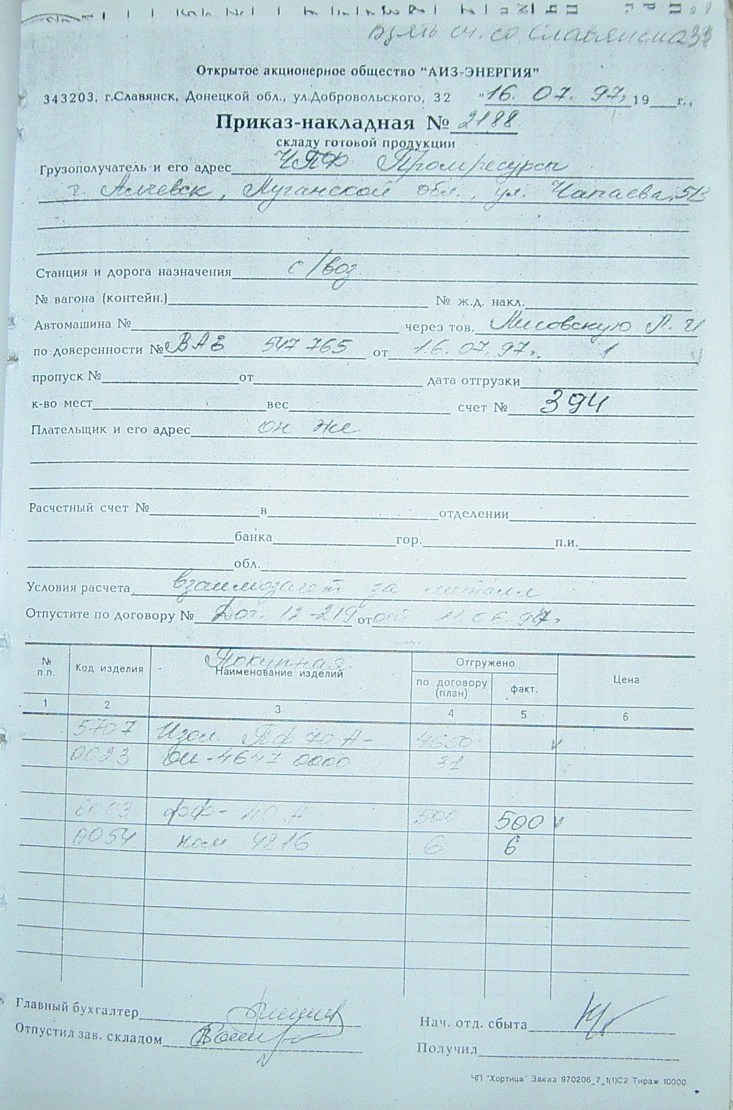 Взять сч. со Славянска
Открытое акционерное общество "АИЗ-ЭНЕРГИЯ"
343203, г.Славянск, Донецкой обл., ул.Добровольского, 32 "16. 07. 97, 19 г.,
Приказ-накладная № 2188
складу готовой продукции
Грузополучатель и его адрес ЧПФ Промресурсы
г. Алчевск, Луганской обл., ул. Чапаева,
Станция и дорога назначения с/воз
№ вагона (контейн.) № ж.д. накл.
Автомашина № через тов. Лисовскую Л. И
по доверенности № ВАБ 547765 от 16.07.97г.
пропуск № от дата отгрузки
к-во мест вес счет № 394
Плательщик и его адрес он же
Расчетный счет № в отделении
банка гор. п.и.
обл.
Условия расчета взаимозачет за металл
Отпустите по договору № Дог. 12-219 от 11.06.97г.
№ п.п. Код изделия Наименование изделий Отгружено Цена
по договору (план) факт.
1 2 3 4 5 6
5707 Изол. ПФ 70 А- 4650
0023 4647 0000 31
6003 ФФ- 40 А 500 500
0054 4216 6 6
Главный бухгалтер
Отпустил зав. складом
Нач. отд. сбыта
Получил
ЧП "Хортица" Заказ 970206_7_1(1)С2 Тираж 10000